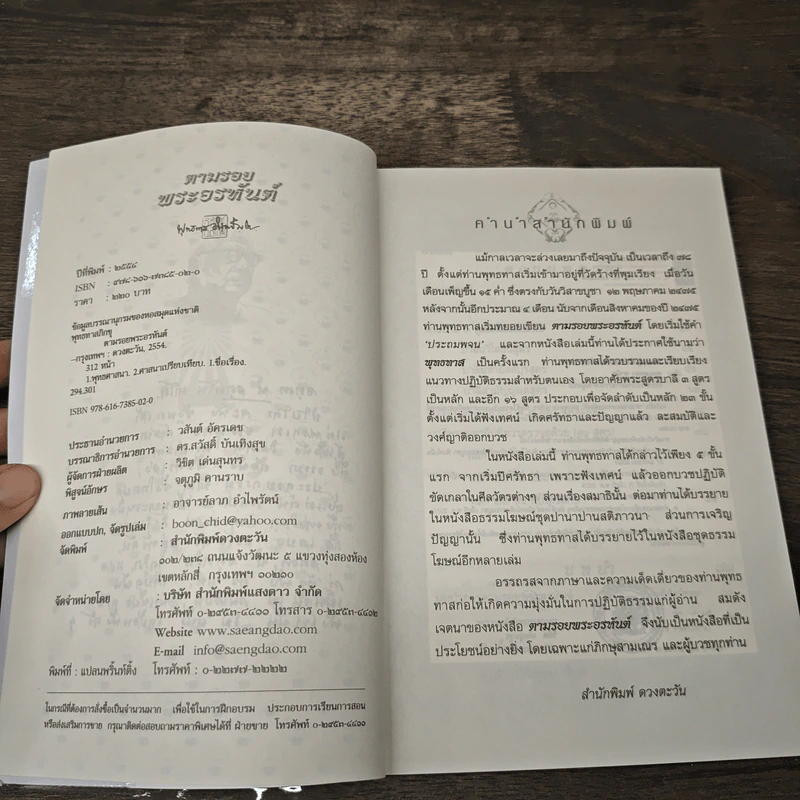 ตามรอย
พระอรหันต์
ปีที่พิมพ์ : ๒๕๕๔
ISBN : ๙๗๘-๖๑๖-๗๓๘๕-๐๒-๐
ราคา : ๒๒๐ บาท
ข้อมูลบรรณานุกรมของหอสมุดแห่งชาติ
พุทธทาสภิกขุ
ตามรอยพระอรหันต์
--กรุงเทพฯ : ดวงตะวัน, 2554.
312 หน้า
1.พุทธศาสนา. 2.ศาสนาเปรียบเทียบ. 1.ชื่อเรื่อง.
294.301
ISBN 978-616-7385-02-0
ประธานอำนวยการ : วสันต์ อัครเดช
บรรณาธิการอำนวยการ : ดร.สวัสดิ์ บันเทิงสุข
ผู้จัดการฝ่ายผลิต : วิชิต เด่นสุนทร
พิสูจน์อักษร : จตุภูมิ คานราบ
ภาพลายเส้น : อาจารย์ลาภ อำไพรัตน์
ออกแบบปก, จัดรูปเล่ม : boon_chid@yahoo.com
จัดพิมพ์ : สำนักพิมพ์ดวงตะวัน
๑๐๒/๒๓๘ ถนนแจ้งวัฒนะ ๕ แขวงทุ่งสองห้อง
เขตหลักสี่ กรุงเทพฯ ๑๐๒๑๐
จัดจำหน่ายโดย : บริษัท สำนักพิมพ์แสงดาว จำกัด
โทรศัพท์ ๐-๒๙๕๓-๔๔๐๐ โทรสาร ๐-๒๙๕๓-๔๔๐๒
Website www.saeangdao.com
E-mail info@saengdao.com
พิมพ์ที่ : แปลนพริ้นท์ติ้ง โทรศัพท์ : ๐-๒๒๗๗-๒๒๒๒
ในกรณีที่ต้องการสั่งซื้อเป็นจำนวนมาก เพื่อใช้ในการฝึกอบรม ประกอบการเรียนการสอน
หรือส่งเสริมการขาย กรุณาติดต่อสอบถามราคาพิเศษได้ที่ ฝ่ายขาย โทรศัพท์ ๐-๒๙๕๓-๔๔๐๐
คำนำสำนักพิมพ์
แม้กาลเวลาจะล่วงเลยมาถึงปัจจุบัน เป็นเวลาถึง ๗๘
ปี ตั้งแต่ท่านพุทธทาสเริ่มเข้ามาอยู่ที่วัดร้างที่พุมเรียง เมื่อวัน
เดือนเพ็ญขึ้น ๑๕ ค่ำ ซึ่งตรงกับวันวิสาขบูชา ๑๒ พฤษภาคม ๒๔๗๕
หลังจากนั้นอีกประมาณ ๔ เดือน นับจากเดือนสิงหาคมของปี ๒๔๗๕
ท่านพุทธทาสเริ่มทยอยเขียน ตามรอยพระอรหันต์ โดยเริ่มใช้คำ
'ประถมพจน' และจากหนังสือเล่มนี้ท่านได้ประกาศใช้นามว่า
พุทธทาส เป็นครั้งแรก ท่านพุทธทาสได้รวบรวมและเรียบเรียง
แนวทางปฏิบัติธรรมสำหรับตนเอง โดยอาศัยพระสูตรบาลี ๓ สูตร
เป็นหลัก และอีก ๑๖ สูตร ประกอบเพื่อจัดลำดับเป็นหลัก ๒๓ ขั้น
ตั้งแต่เริ่มได้ฟังเทศน์ เกิดศรัทธาและปัญญาแล้ว ละสมบัติและ
วงศ์ญาติออกบวช
ในหนังสือเล่มนี้ ท่านพุทธทาสได้กล่าวไว้เพียง ๕ ขั้น
แรก จากเริ่มปีศรัทธา เพราะฟังเทศน์ แล้วออกบวชปฏิบัติ
ขัดเกลาในศีลวัตรต่างๆ ส่วนเรื่องสมาธินั้น ต่อมาท่านได้บรรยาย
ในหนังสือธรรมโฆษณ์ชุดปานาปานสติภาวนา ส่วนการเจริญ
ปัญญานั้น ซึ่งท่านพุทธทาสได้บรรยายไว้ในหนังสือชุดธรรม
โฆษณ์อีกหลายเล่ม
อรรถรสจากภาษาและความเด็ดเดี่ยวของท่านพุทธ
ทาสก่อให้เกิดความมุ่งมั่นในการปฏิบัติธรรมแก่ผู้อ่าน สมดัง
เจตนาของหนังสือ ตามรอยพระอรหันต์ จึงนับเป็นหนังสือที่เป็น
ประโยชน์อย่างยิ่ง โดยเฉพาะแก่ภิกษุสามเณร และผู้บวชทุกท่าน
สำนักพิมพ์ ดวงตะวัน